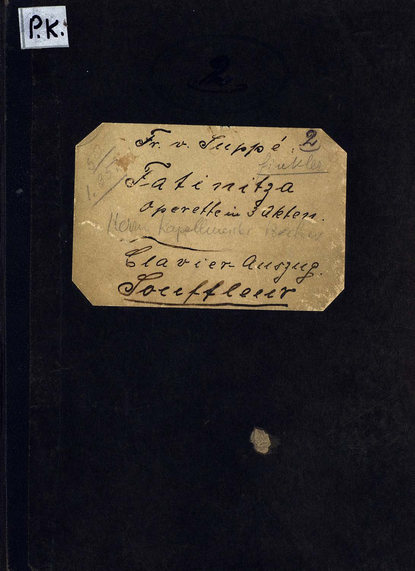 P.K.
2
Fr. v. Suppé.
2
Fatinitza
Operette in 3 Akten.
Herrn Kapellmeister
Clavier-Auszug.
Souffleur